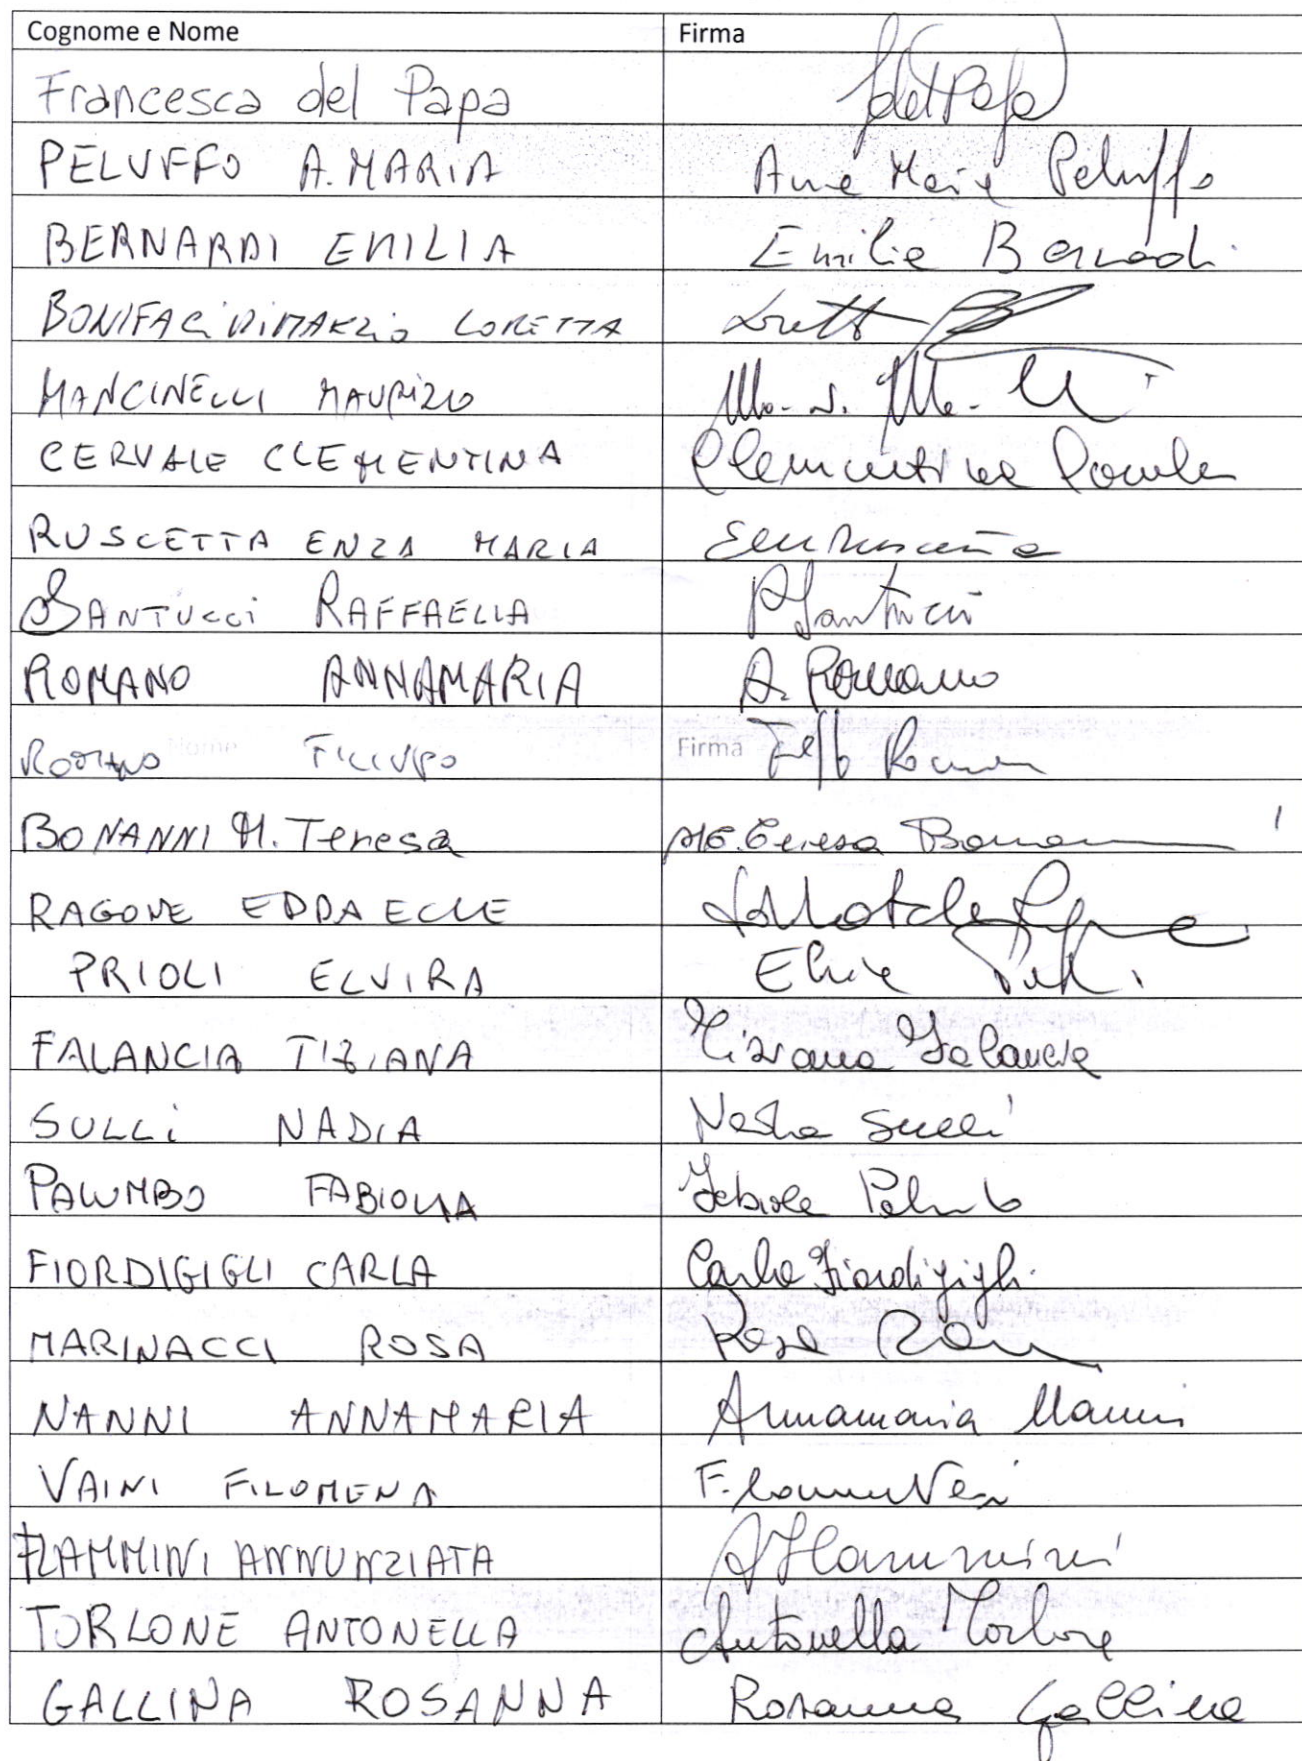 Cognome e Nome Firma
Francesca del Papa fdelPapa
PELUFFO A. MARIA Anna Maria Peluffo
BERNARDI EMILIA Emilia Bernardi
BONIFACI DIMARZIO LORETTA
MANCINELLI MAURIZIO
CERVALE CLEMENTINA Clementina
RUSCETTA ENZA MARIA
SANTUCCI RAFFAELLA R Santucci
ROMANO ANNAMARIA A. Romano
ROMANO Nome FILIPPO Firma
BONANNI M. Teresa M. Teresa
RAGONE EDDA ECLE
PRIOLI ELVIRA
FALANCIA TIZIANA Tiziana Falancia
SULLI NADIA Nadia Sulli
PALUMBO FABIOLA Fabiola Palumbo
FIORDIGIGLI CARLA Carla Fiordigigli
MARINACCI ROSA Rosa
NANNI ANNAMARIA Annamaria Nanni
VAINI FILOMENA
FLAMMINI ANNUNZIATA A Flammini
TORLONE ANTONELLA Antonella Torlone
GALLINA ROSANNA Rosanna Gallina